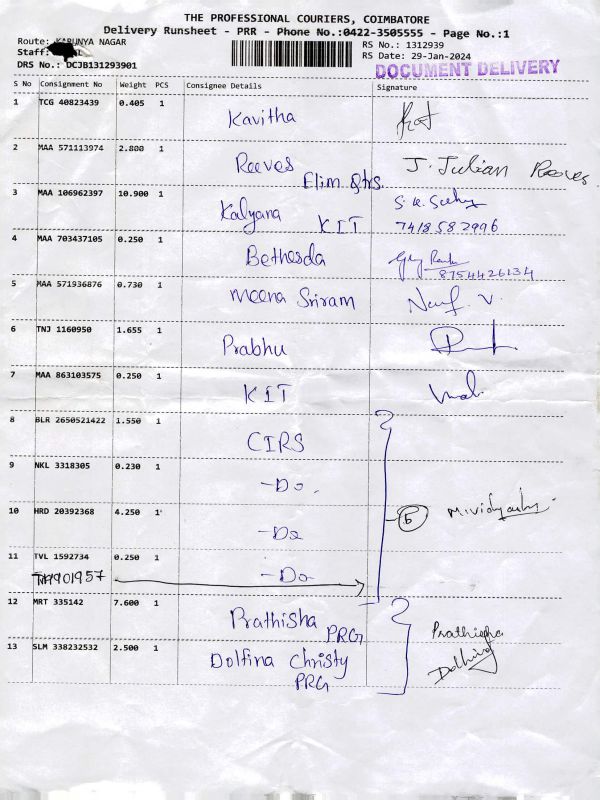 THE PROFESSIONAL COURIERS, COIMBATORE
Delivery Runsheet - PRR - Phone No.:0422-3505555 - Page No.:1
Route: KARUNYA NAGAR
RS No.: 1312939
Staff:
RS Date: 29-Jan-2024
DRS No.: DCJB131293901
DOCUMENT DELIVERY
S No Consignment No Weight PCS Consignee Details Signature
1 TCG 40823439 0.405 1 Kavitha
2 MAA 571113974 2.800 1 Reeves Elim Qtrs. J. Julian Reeves
3 MAA 106962397 10.900 1 Kalyana KIT 7418582996
4 MAA 703437105 0.250 1 Bethesda 8754426134
5 MAA 571936876 0.730 1 Meena Sriram
6 TNJ 1160950 1.655 1 Prabhu
7 MAA 863103575 0.250 1 KIT
8 BLR 2650521422 1.550 1 CIRS
9 NKL 3318305 0.230 1 -Do.
10 HRD 20392368 4.250 1 -Do 5
11 TVL 1592734 0.250 1 -Do
12 MRT 335142 7.600 1 Prathisha PRG Prathisha
13 SLM 338232532 2.500 1 Dolfina Christy PRG